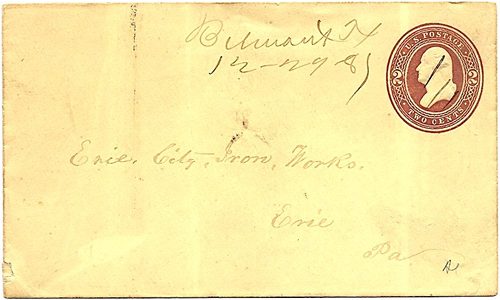 Belmont
12-29
U.S. POSTAGE
2 2
TWO CENTS
Erie. City. Iron. Works.
Erie
Pa